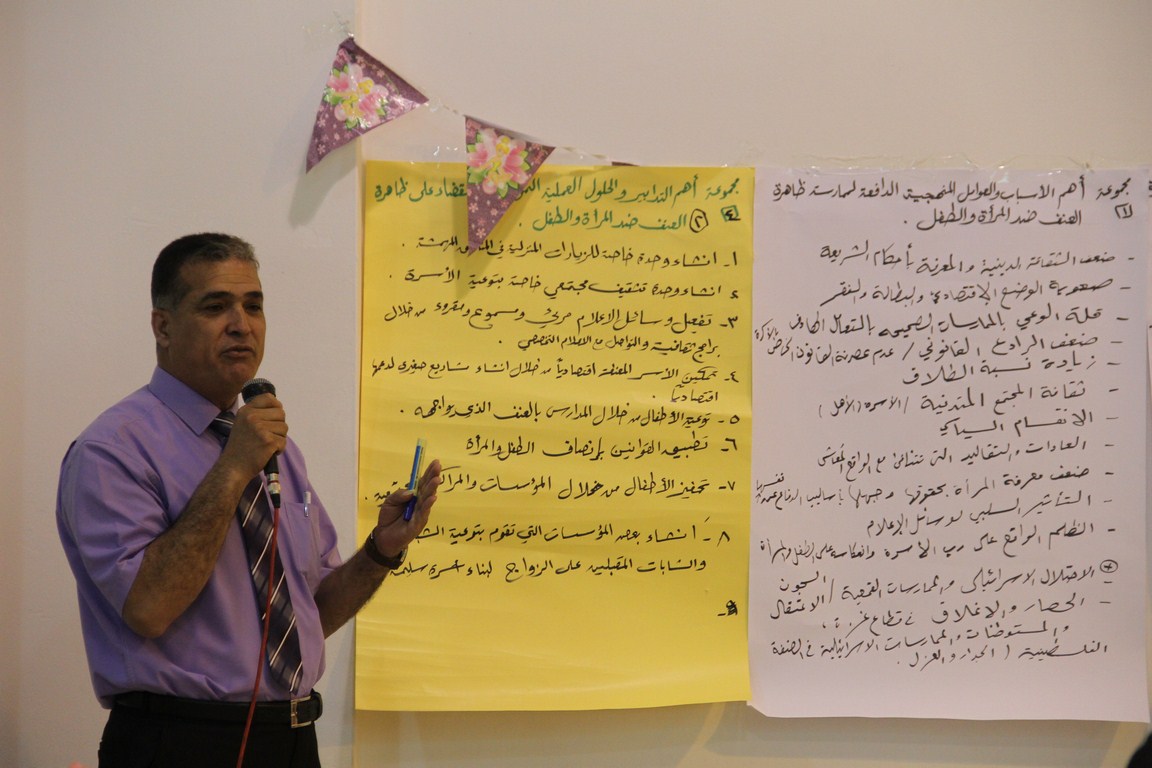 مجموعة أهم الأسباب والعوامل المنهجية الدافعة لممارسة ظاهرة
العنف ضد المرأة والطفل .
- ضعف الثقافة الدينية والمعرفة بأحكام الشريعة
- صعوبة الوضع الاقتصادي والبطالة والفقر
- قلة الوعي بالممارسات الصحيحة
- ضعف الرادع القانوني / عدم عصرنة القانون
- زيادة نسبة الطلاق
- ثقافة المجتمع المتدنية / الأسرة (الأهل)
- الانقسام السياسي
- العادات والتقاليد التي تتنافى مع الواقع المعاش
- ضعف معرفة المرأة بحقوقها وجهلها بأساليب الدفاع عن
- التأثير السلبي لوسائل الإعلام
- الظلم الواقع على رب الأسرة وانعكاسه على الطفل والمرأة
الاحتلال الاسرائيلي والممارسات القمعية / السجون
الاعتقال
- الحصار والإغلاق في قطاع غزة .
- والمستوطنات والممارسات الاسرائيلية في الضفة
الفلسطينية ( الجدار والعزل .
مجموعة أهم التدابير والحلول العملية للقضاء على ظاهرة
٢ العنف ضد المرأة والطفل .
١- انشاء وحدة خاصة للزيارات المنزلية في المناطق المهمشة .
٢ انشاء وحدة تثقيف مجتمعي خاصة بتوعية الأسرة .
٣- تفعيل وسائل الاعلام مرئي ومسموع ومقروء من خلال
برامج ثقافية والتواصل مع الاعلام التخصصي .
٤- تمكين الأسر المعنفة اقتصادياً من خلال انشاء مشاريع صغيرة لدعمها
اقتصادياً .
٥- توعية الأطفال من خلال المدارس بالعنف الذي يواجهه .
٦- تطبيق القوانين بإنصاف الطفل والمرأة
٧- تحفيز الأطفال من خلال المؤسسات
٨- انشاء بعض المؤسسات التي تقوم بتوعية
والشابات المقبلين على الزواج لبناء أسرة سليمة
٩-